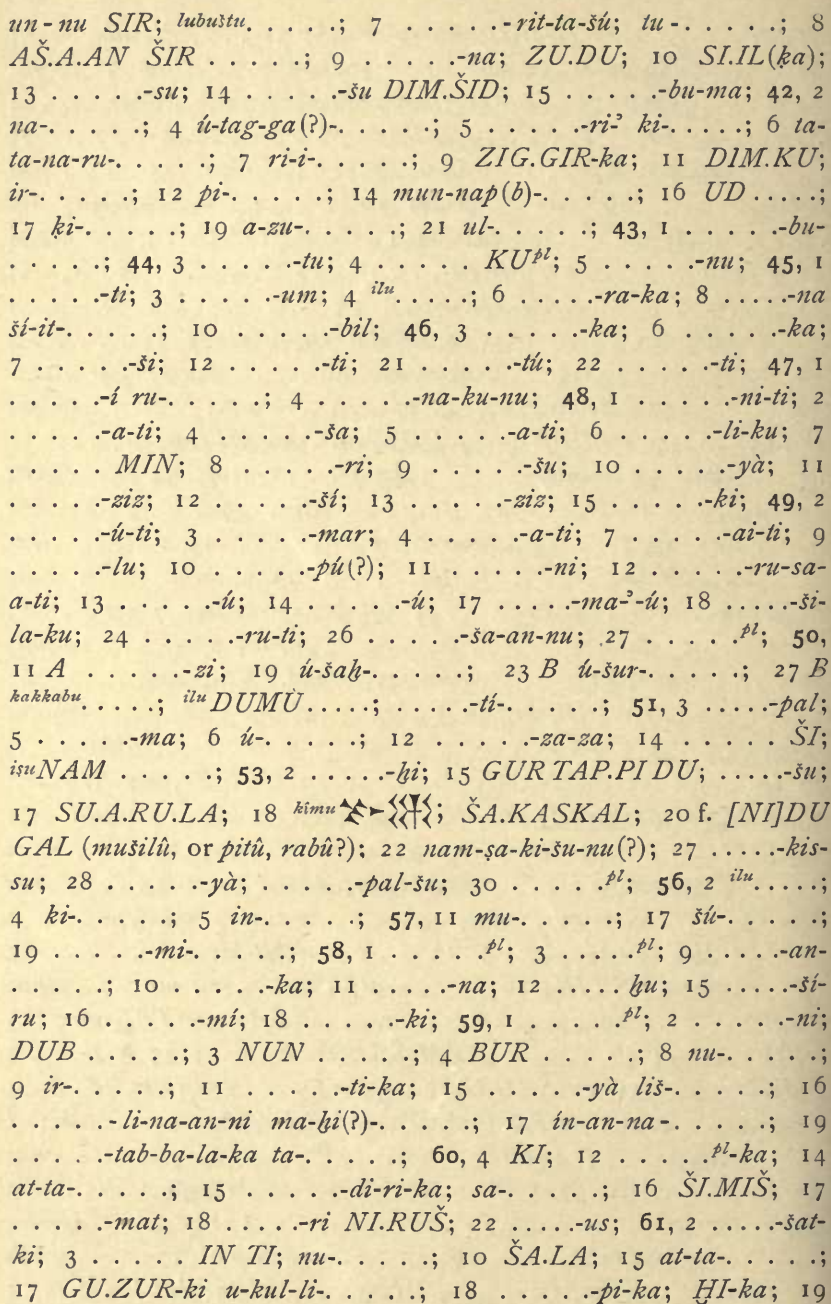 un-nu SIR; lubuštu. . . . .; 7 . . . . .-rit-ta-šú; tu-. . . . .; 8
AŠ.A.AN ŠIR . . . . .; 9 . . . . .-na; ZU.DU; 10 SI.IL(ḳa);
13 . . . . .-su; 14 . . . . .-šu DIM.ŠID; 15 . . . . .-bu-ma; 42, 2
na-. . . . .; 4 ú-tag-ga(?)-. . . . .; 5 . . . . .-ri-ʾ ki-. . . . .; 6 ta-
ta-na-ru-. . . . .; 7 ri-i-. . . . .; 9 ZIG.GIR-ka; 11 DIM.KU;
ir-. . . . .; 12 pi-. . . . .; 14 mun-nap(b)-. . . . .; 16 UD . . . . .;
17 ḳi-. . . . .; 19 a-zu-. . . . .; 21 ul-. . . . .; 43, 1 . . . . .-bu-
. . . . .; 44, 3 . . . . .-tu; 4 . . . . . KUpl; 5 . . . . .-nu; 45, 1
. . . . .-ti; 3 . . . . .-um; 4 ilu. . . . .; 6 . . . . .-ra-ka; 8 . . . . .-na
ší-it-. . . . .; 10 . . . . .-bil; 46, 3 . . . . .-ka; 6 . . . . .-ka;
7 . . . . .-ši; 12 . . . . .-ti; 21 . . . . .-tú; 22 . . . . .-ti; 47, 1
. . . . .-í ru-. . . . .; 4 . . . . .-na-ku-nu; 48, 1 . . . . .-ni-ti; 2
. . . . .-a-ti; 4 . . . . .-ša; 5 . . . . .-a-ti; 6 . . . . .-li-ku; 7
. . . . . MIN; 8 . . . . .-ri; 9 . . . . .-šu; 10 . . . . .-yà; 11
. . . . .-ziz; 12 . . . . .-ší; 13 . . . . .-ziz; 15 . . . . .-ki; 49, 2
. . . . .-ú-ti; 3 . . . . .-mar; 4 . . . . .-a-ti; 7 . . . . .-ai-ti; 9
. . . . .-lu; 10 . . . . .-pú(?); 11 . . . . .-ni; 12 . . . . .-ru-sa-
a-ti; 13 . . . . .-ú; 14 . . . . .-ú; 17 . . . . .-ma-ʾ-ú; 18 . . . . .-ši-
la-ku; 24 . . . . .-ru-ti; 26 . . . . .-ša-an-nu; 27 . . . . .pl; 50,
11 A . . . . .-zi; 19 ú-šaḫ-. . . . .; 23 B ú-šur-. . . . .; 27 B
kakkabu. . . . .; ilu DUMÙ. . . . .; . . . . .-tí-. . . . .; 51, 3 . . . . .-pal;
5 . . . . .-ma; 6 ú-. . . . .; 12 . . . . .-za-za; 14 . . . . . ŠI;
iṣuNAM . . . . .; 53, 2 . . . . .-ḫi; 15 GUR TAP.PI DU; . . . . .-šu;
17 SU.A.RU.LA; 18 kímu; ŠA.KASKAL; 20 f. [NI]DU
GAL (mušilû, or pitû, rabû?); 22 nam-ṣa-ki-šu-nu(?); 27 . . . . .-kis-
su; 28 . . . . .-yà; . . . . .-pal-šu; 30 . . . . .pl; 56, 2 ilu. . . . .;
4 ki-. . . . .; 5 in-. . . . .; 57, 11 mu-. . . . .; 17 šú-. . . . .;
19 . . . . .-mi-. . . . .; 58, 1 . . . . .pl; 3 . . . . .pl; 9 . . . . .-an-
. . . . .; 10 . . . . .-ka; 11 . . . . .-na; 12 . . . . . ḫu; 15 . . . . .-ší-
ru; 16 . . . . .-mí; 18 . . . . .-ki; 59, 1 . . . . .pl; 2 . . . . .-ni;
DUB . . . . .; 3 NUN . . . . .; 4 BUR . . . . .; 8 nu-. . . . .;
9 ir-. . . . .; 11 . . . . .-ti-ka; 15 . . . . .-yà liš-. . . . .; 16
. . . . .-li-na-an-ni ma-ḫi(?)-. . . . .; 17 ín-an-na-. . . . .; 19
. . . . .-tab-ba-la-ka ta-. . . . .; 60, 4 KI; 12 . . . . .pl-ka; 14
at-ta-. . . . .; 15 . . . . .-di-ri-ka; sa-. . . . .; 16 ŠI.MIŠ; 17
. . . . .-mat; 18 . . . . .-ri NI.RUŠ; 22 . . . . .-us; 61, 2 . . . . .-šat-
ki; 3 . . . . . IN TI; nu-. . . . .; 10 ŠA.LA; 15 at-ta-. . . . .;
17 GU.ZUR-ki u-kul-li-. . . . .; 18 . . . . .-pi-ka; ḪI-ka; 19